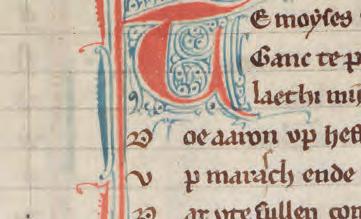 T E moyses
Ganc te p
laethi mi
D oe aaron vp heff
V p marach ende
D ar vte sullen com